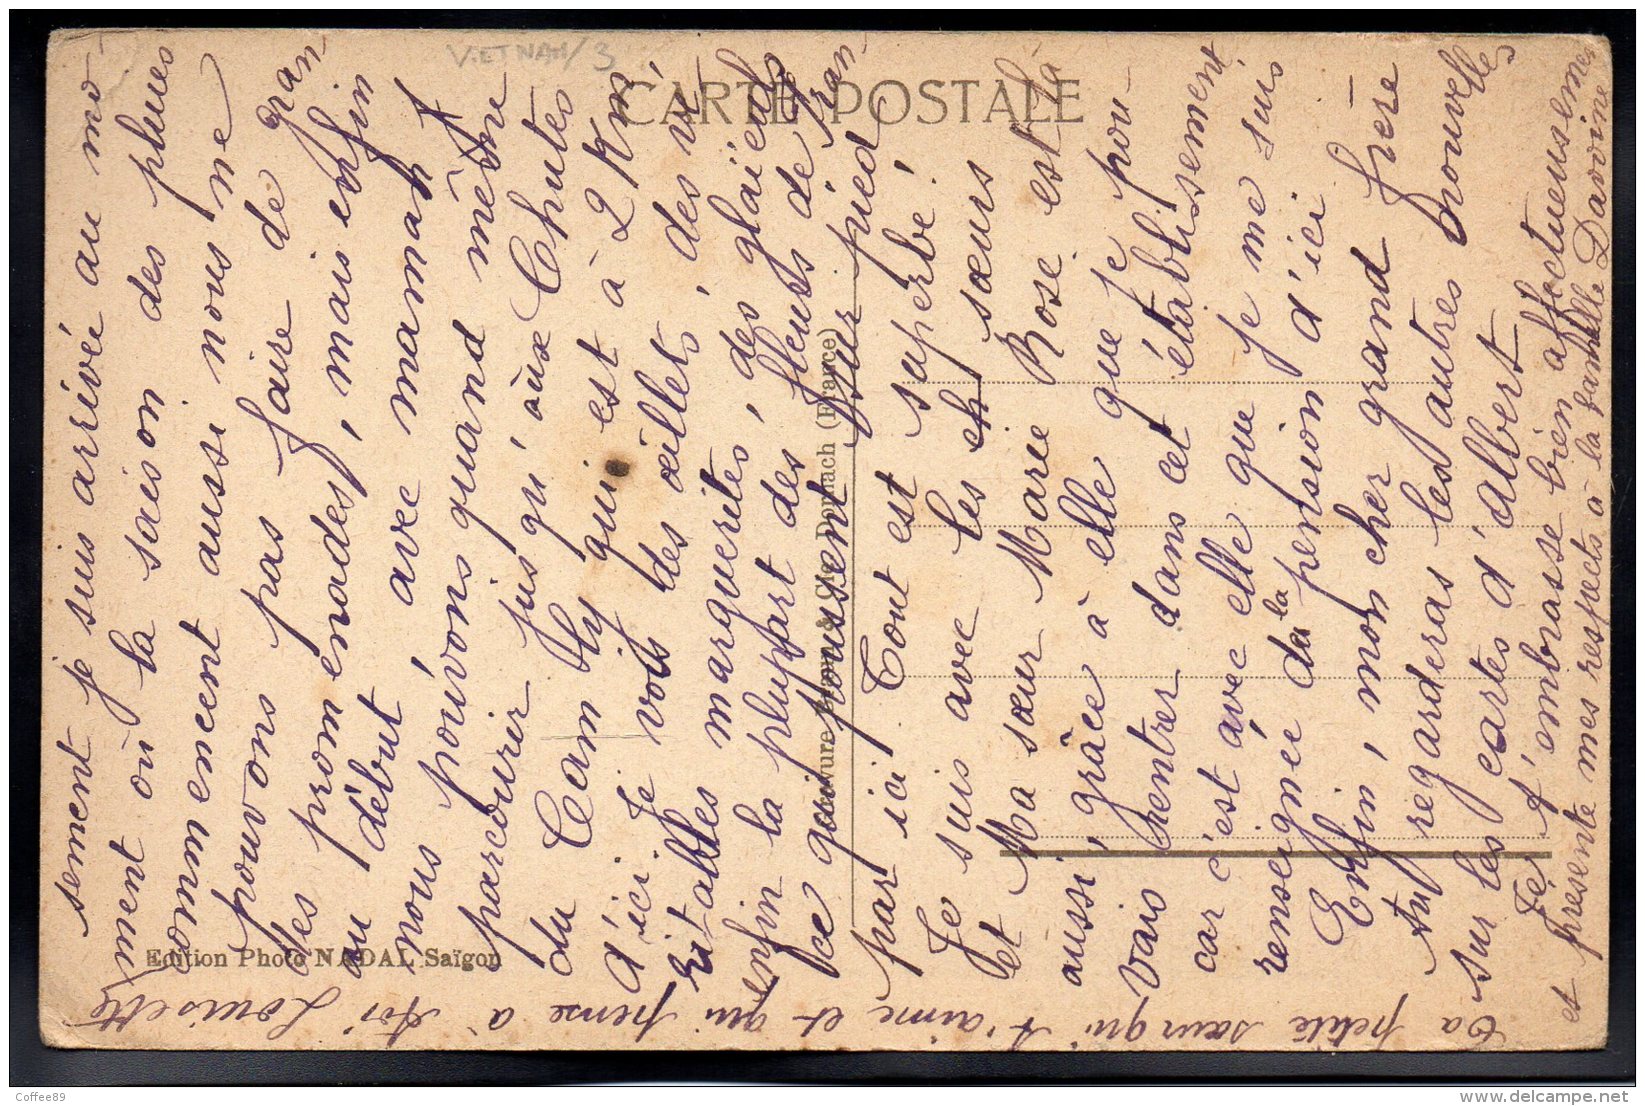 VIETNAM/3
CARTE POSTALE
sement je suis arrivée au mo-
ment où la saison des pluies
commencent aussi nous ne
pouvons pas faire de gran-
des promenades, mais enfin
au début, avec maman
nous pouvons quand même
parcourir jusqu'aux Chutes
du Cam Ly qui est à 2 Km
d'ici. Je vois des œillets, des vé-
ritables marguerites, des glaïeuls
enfin la plupart des fleurs de Fran-
ce qui poussent sur pied
par ici. Tout est superbe!
Je suis avec les ch sœurs
et Ma sœur Marie Rose est là
aussi, grâce à elle que je pou-
vais rentrer dans cet établissement
car c'est avec elle que je me suis
renseignée de la pension d'ici.
Enfin, mon cher grand frère
tu regarderas les autres nouvelles
sur les cartes d'Albert
Je t'embrasse bien affectueusement
et présente mes respects à la famille Davoine
Ta petite sœur qui t'aime et qui pense à toi Louisette
Edition Photo NADAL Saïgon
Gravure Braun & Cie Dornach (France)
Coffee89
www.delcampe.net